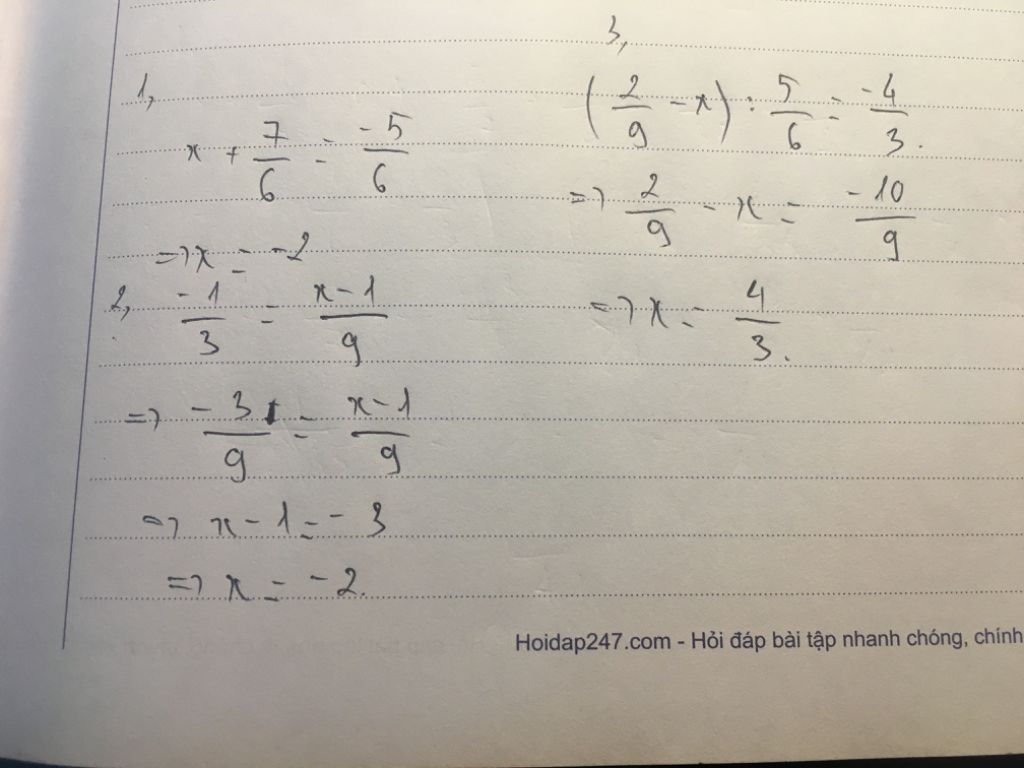 1,
x + 7/6 = -5/6
=> x = -2
2, -1/3 = x-1/9
=> -3/9 = x-1/9
=> x-1 = -3
=> x = -2.
3,
(2/9 - x) : 5/6 = -4/3.
=> 2/9 - x = -10/9
=> x = 4/3.
Hoidap247.com - Hỏi đáp bài tập nhanh chóng, chính